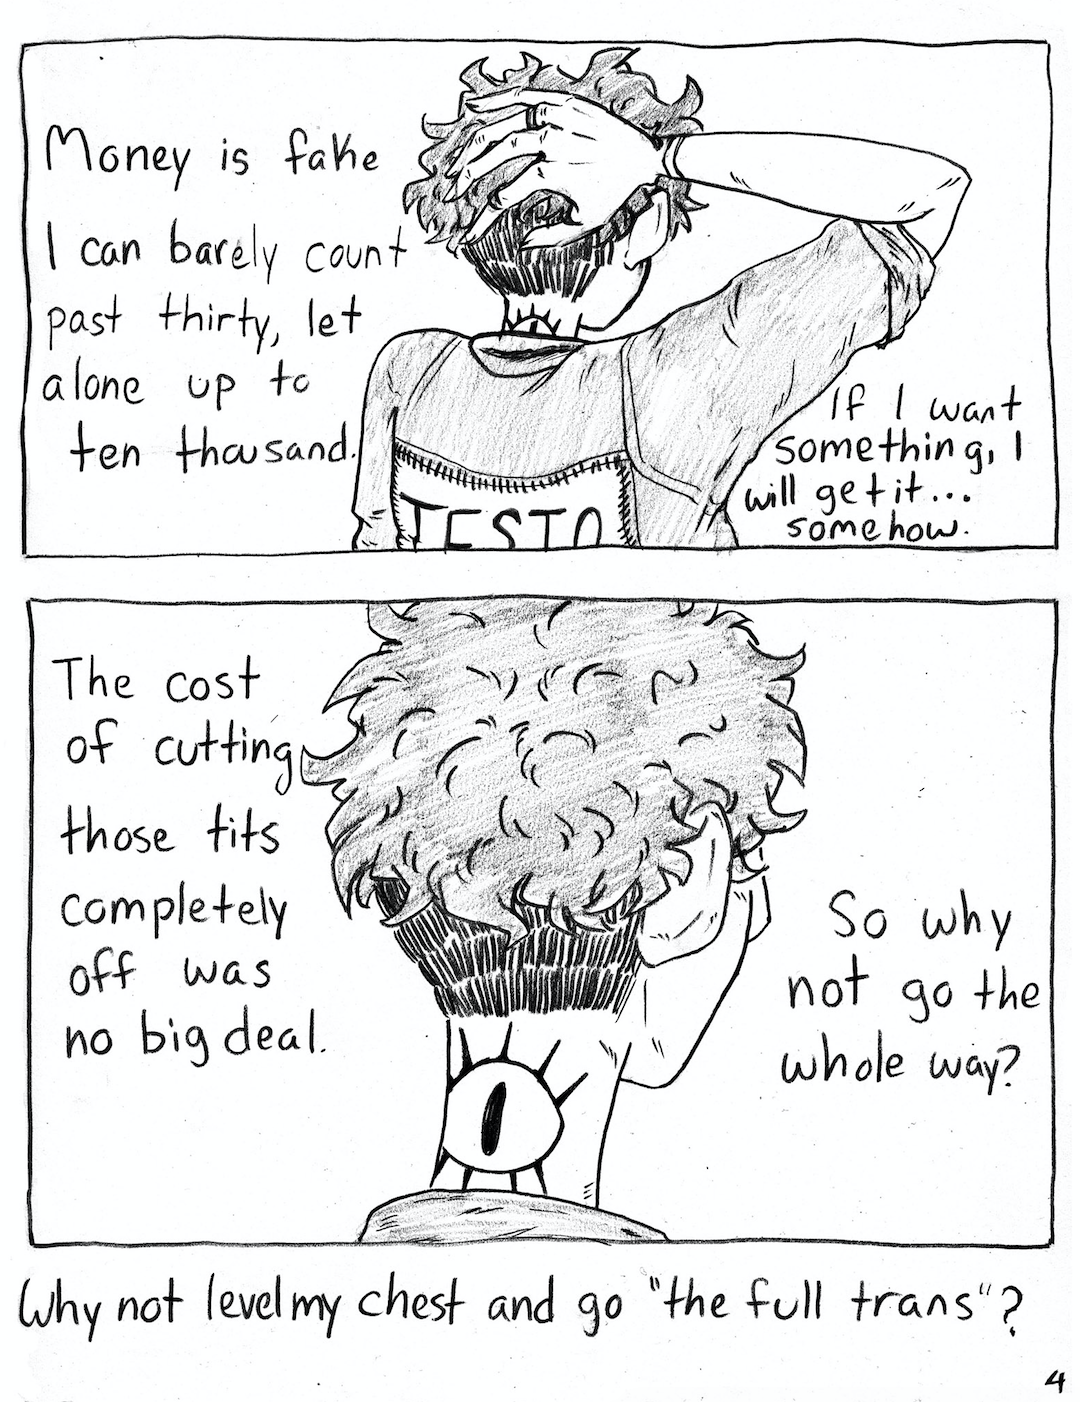 Money is fake
I can barely count
past thirty, let
alone up to
ten thousand.
If I want
something, I
will get it...
somehow.
TESTO
The cost
of cutting
those tits
completely
off was
no big deal.
So why
not go the
whole way?
Why not level my chest and go "the full trans"?
4